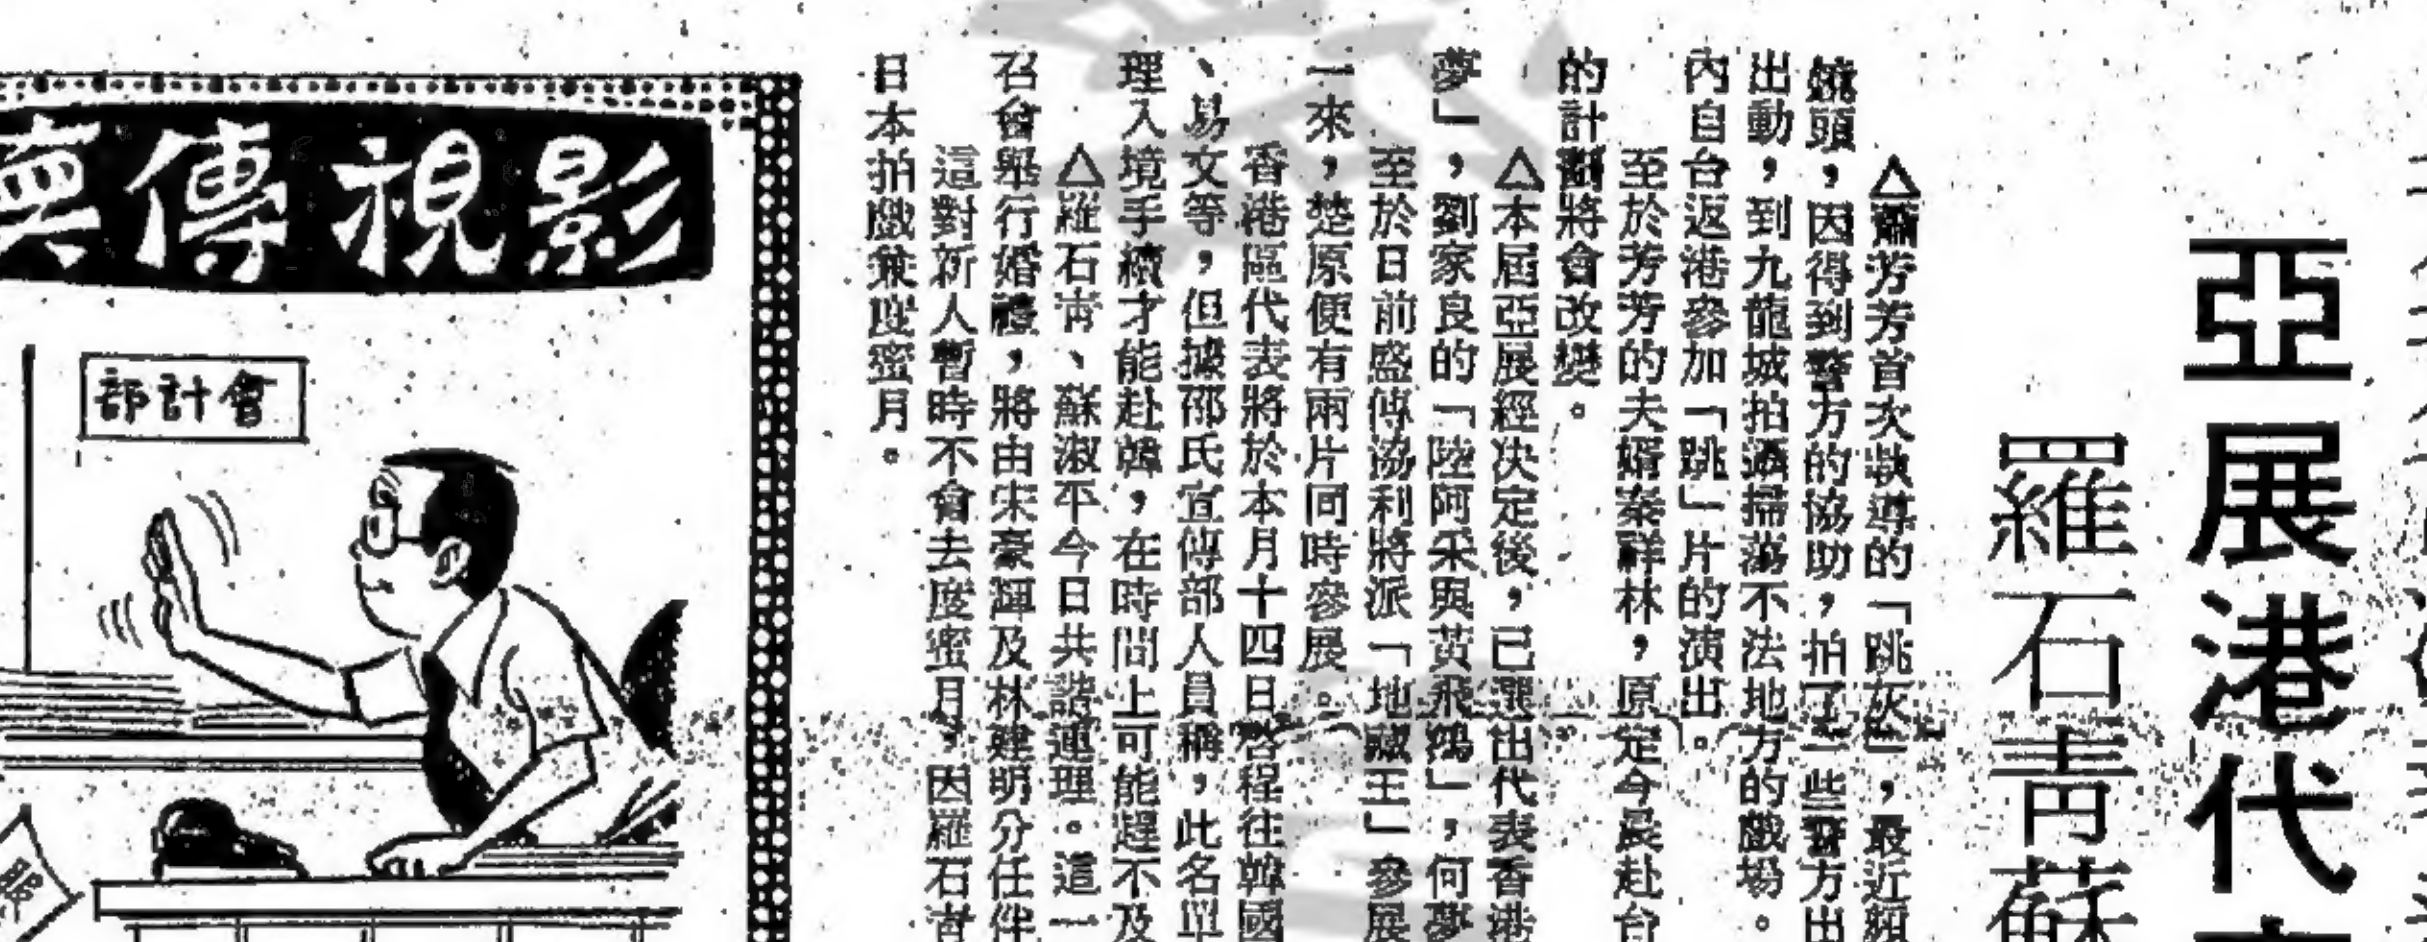 亞展港代
羅石青蘇
△蕭芳芳首次執導的「跳灰」，最近頻
鏡頭，因得到警方的協助，拍了一些警方出
出動，到九龍城拍攝掃蕩不法地方的戲場。
內自台返港參加「跳」片的演出。
至於芳芳的夫婿秦祥林，原定今晨赴台
的計劃將會改變。
△本屆亞展經決定後，已選出代表香港
夢」，劉家良的「陸阿采與黃飛鴻」，何夢
至於日前盛傳協利將派「地藏王」參展
一來，楚原便有兩片同時參展。
香港區代表將於本月十四日啓程往韓國
、易文等，但據邵氏宣傳部人員稱，此名單
理入境手續才能赴韓，在時間上可能趕不及
△羅石靑、蘇淑平今日共諧連理。這一
召會舉行婚禮，將由宋豪輝及林建明分任伴
這對新人暫時不會去度蜜月，因羅石靑
日本拍戲兼度蜜月。
影視傳真
會計部